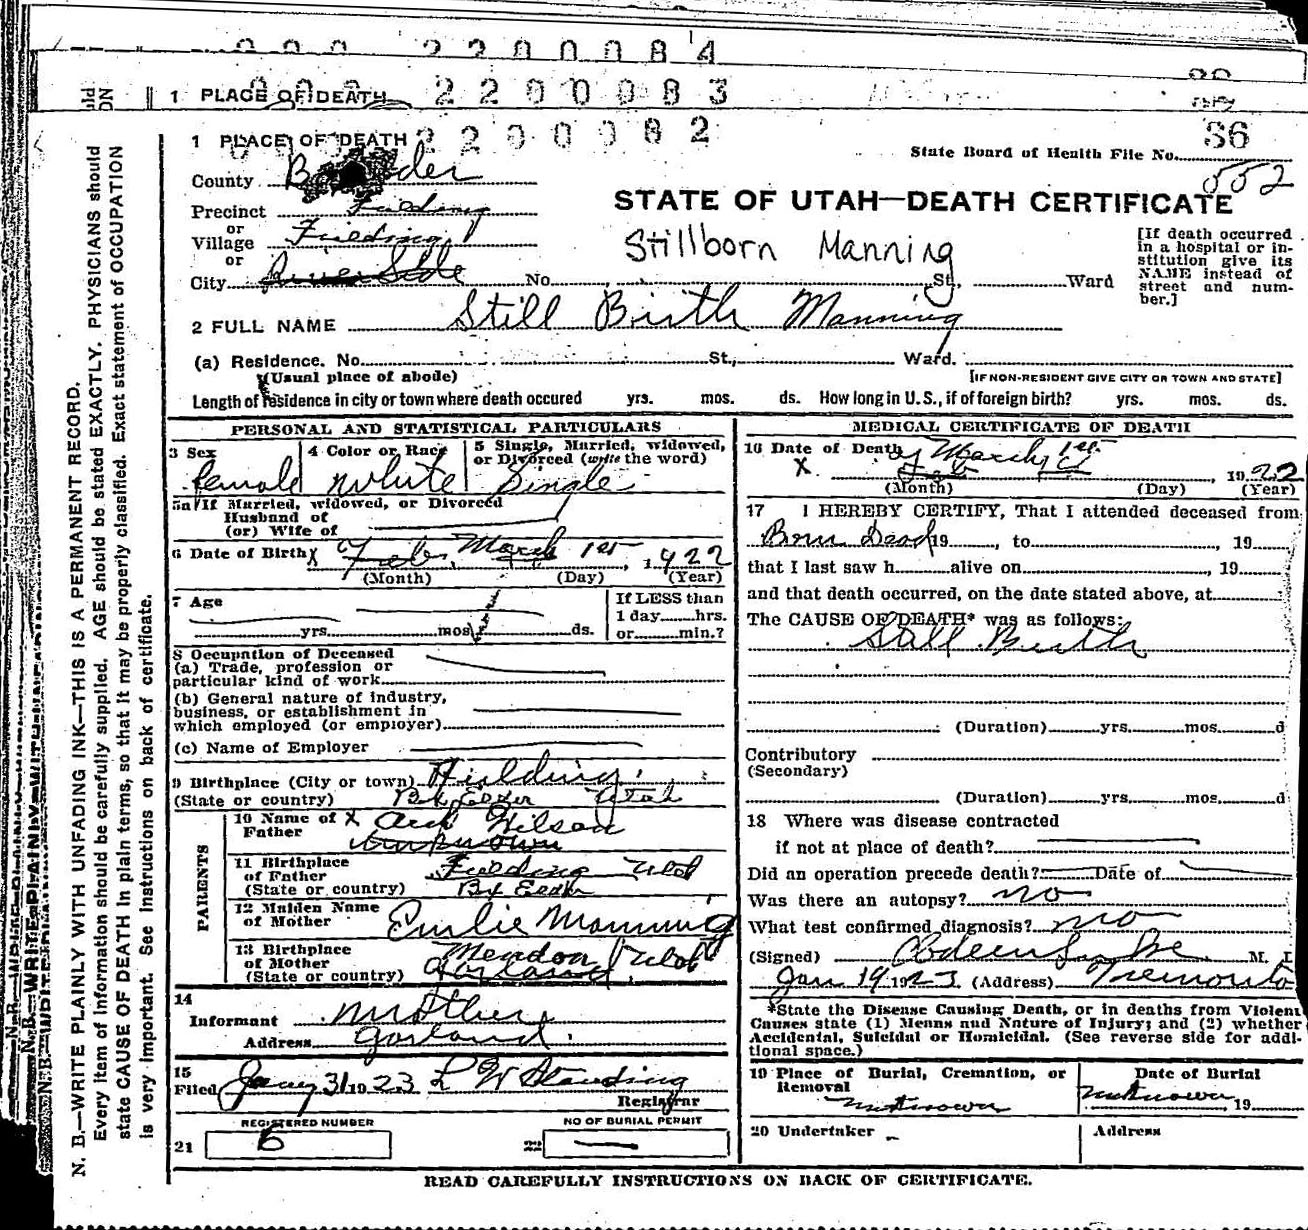 000 2200084
1 PLACE OF DEATH 000 2200083
1 PLACE OF DEATH 2200082
86
State Board of Health File No.
552
County B der
STATE OF UTAH—DEATH CERTIFICATE
Precinct Fielding
or
Village Fielding
or
City River Side No. St., Ward
Stillborn Manning
[If death occurred in a hospital or institution give its NAME instead of street and number.]
2 FULL NAME Still Birth Manning
(a) Residence. No. St., Ward.
(Usual place of abode)
[IF NON-RESIDENT GIVE CITY OR TOWN AND STATE]
Length of residence in city or town where death occured yrs. mos. ds. How long in U. S., if of foreign birth? yrs. mos. ds.
PERSONAL AND STATISTICAL PARTICULARS
3 Sex female
4 Color or Race white
5 Single, Married, widowed, or Divorced (write the word) Single
5a If Married, widowed, or Divorced
Husband of
(or) Wife of
6 Date of Birth X Feb. March 1st, 1922
(Month) (Day) (Year)
7 Age
yrs. mos. ds.
If LESS than
1 day hrs.
or min.?
8 Occupation of Deceased
(a) Trade, profession or
particular kind of work
(b) General nature of industry,
business, or establishment in
which employed (or employer)
(c) Name of Employer
9 Birthplace (City or town) Fielding
(State or country) Bx Elder Utah
PARENTS
10 Name of Father X Wilson
unknown
11 Birthplace
of Father
(State or country) Fielding Utah
Bx Elder
12 Maiden Name
of Mother Emlie Manning
13 Birthplace
of Mother
(State or country) Mendon Utah
Garland
14
Informant Mother
Address Garland
15
Filed Jany 31 1923 L W Standing
Registrar
REGISTERED NUMBER
21 6
NO OF BURIAL PERMIT
22
MEDICAL CERTIFICATE OF DEATH
16 Date of Death March 1st
X Feb, 1922
(Month) (Day) (Year)
17 I HEREBY CERTIFY, That I attended deceased from
Born Dead 19, to, 19
that I last saw h alive on, 19
and that death occurred, on the date stated above, at
The CAUSE OF DEATH* was as follows:
Still Birth
(Duration) yrs. mos. d
Contributory
(Secondary)
(Duration) yrs. mos. d
18 Where was disease contracted
if not at place of death?
Did an operation precede death? Date of
Was there an autopsy? no
What test confirmed diagnosis? no
(Signed) M. D
Jan 19 1923 (Address) Tremonton
*State the Disease Causing Death, or in deaths from Violent
Causes state (1) Means and Nature of Injury; and (2) whether
Accidental, Suicidal or Homicidal. (See reverse side for addi-
tional space.)
19 Place of Burial, Cremation, or
Removal
unknown
Date of Burial
unknown, 19
20 Undertaker
Address
READ CAREFULLY INSTRUCTIONS ON BACK OF CERTIFICATE.
N. B.—WRITE PLAINLY WITH UNFADING INK—THIS IS A PERMANENT RECORD.
Every item of information should be carefully supplied. AGE should be stated EXACTLY. PHYSICIANS should
state CAUSE OF DEATH in plain terms, so that it may be properly classified. Exact statement of OCCUPATION
is very important. See Instructions on back of certificate.